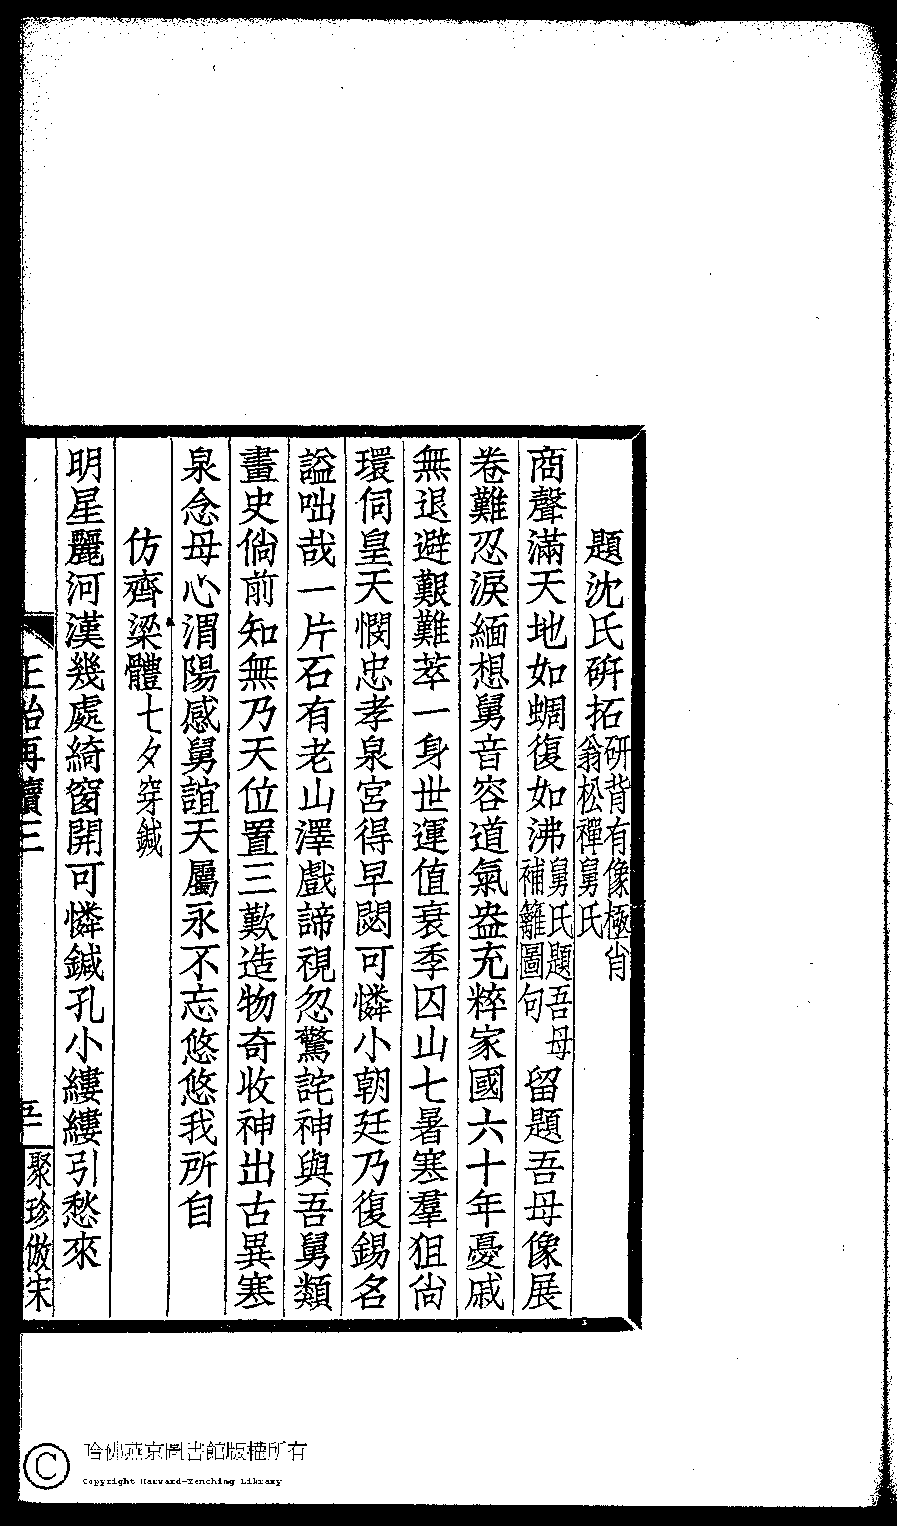 題沈氏硏拓研背有像極肖翁松禪舅氏
商聲滿天地如蜩復如沸舅氏題吾母補籬圖句留題吾母像展
卷難忍淚緬想舅音容道氣盎充粹家國六十年憂戚
無退避艱難萃一身世運值衰季囚山七暑寒羣狙尙
環伺皇天憫忠孝泉宮得早閟可憐小朝廷乃復錫名
謚咄哉一片石有老山澤戲諦視忽驚詫神與吾舅類
畫史倘前知無乃天位置三歎造物奇收神出古異寒
泉念母心渭陽感舅誼天屬永不忘悠悠我所自
仿齊梁體七夕穿鍼
明星麗河漢幾處綺窗開可憐鍼孔小縷縷引愁來
聚珍倣宋
哈佛燕京圖書館版權所有
Copyright Harvard-Yenching Library